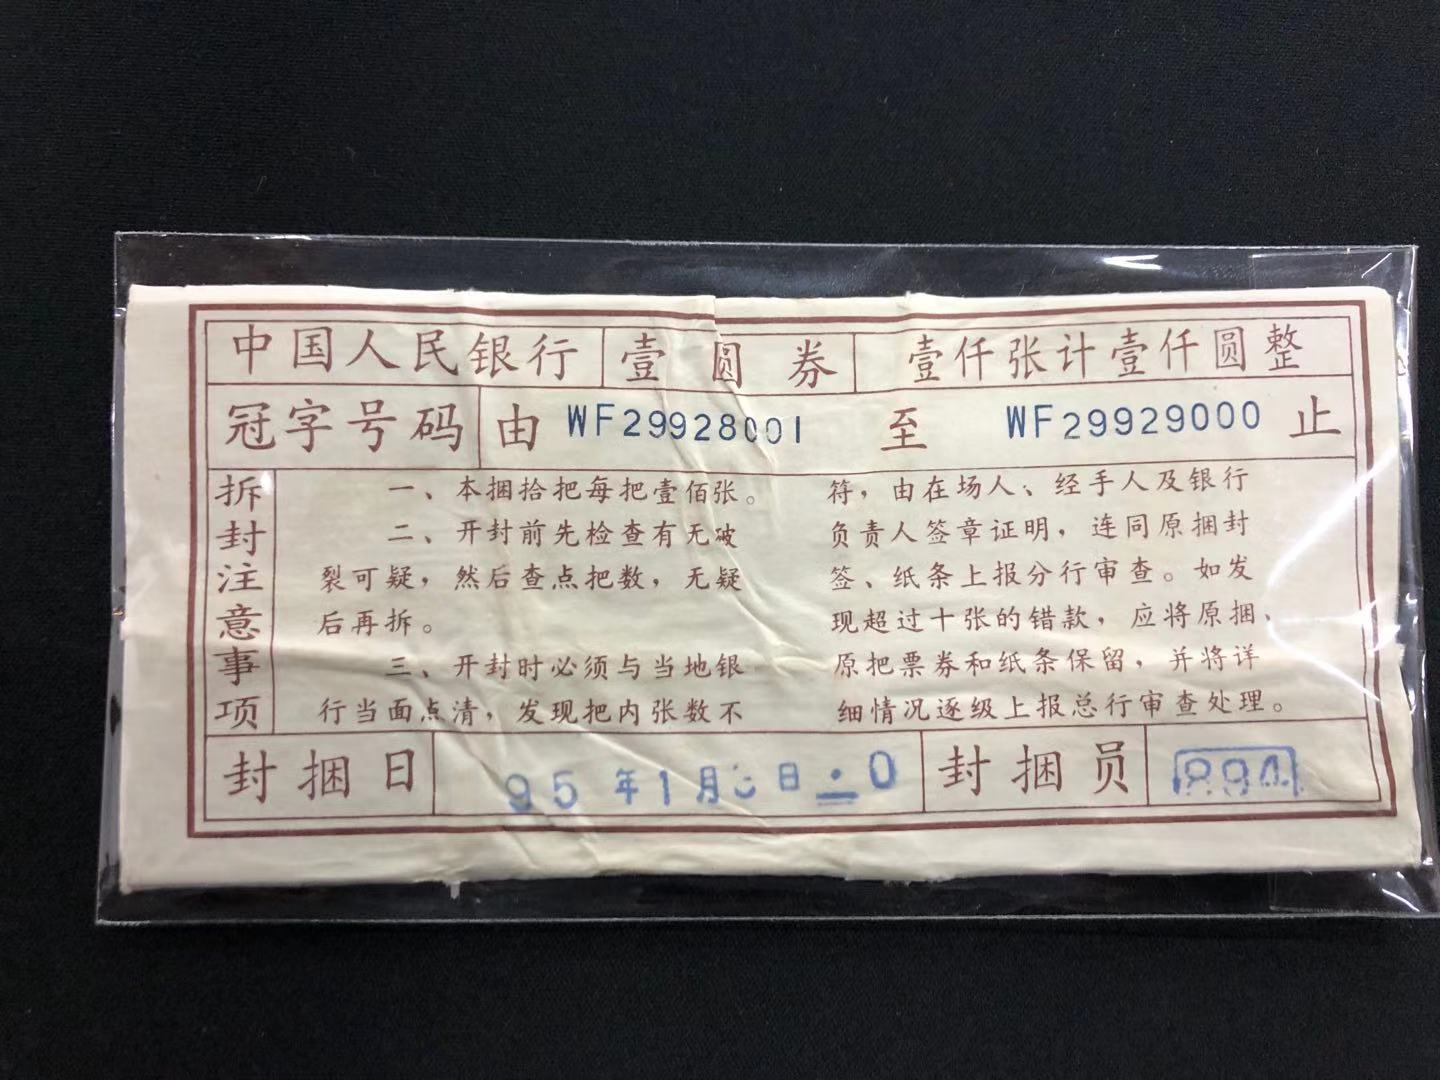 中国人民银行 壹圆券 壹仟张计壹仟圆整
冠字号码 由 WF29928001 至 WF29929000 止
拆封注意事项
一、本捆拾把每把壹佰张。
二、开封前先检查有无破
裂可疑，然后查点把数，无疑
后再拆。
三、开封时必须与当地银
行当面点清，发现把内张数不
符，由在场人、经手人及银行
负责人签章证明，连同原捆封
签、纸条上报分行审查。如发
现超过十张的错款，应将原捆、
原把票券和纸条保留，并将详
细情况逐级上报总行审查处理。
封捆日 95年1月 日 0 封捆员 894